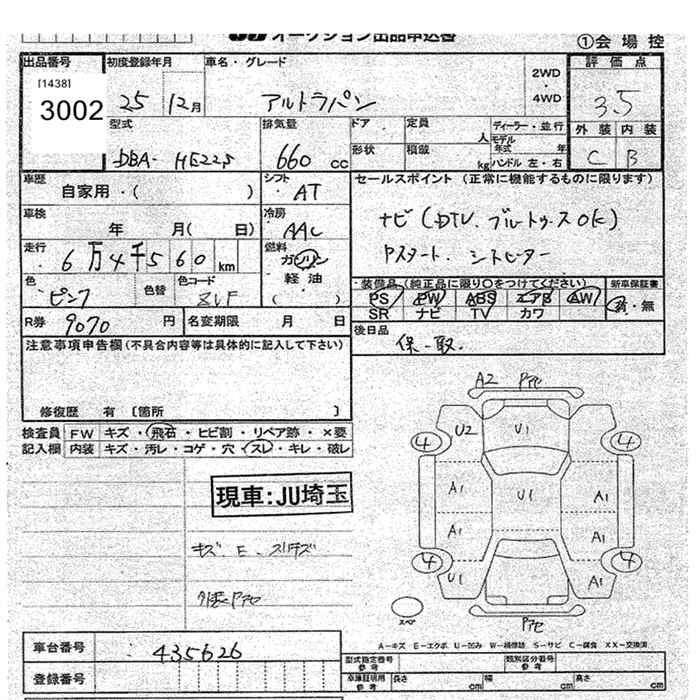 オークション出品申込書
①会場控
出品番号 初度登録年月 車名・グレード 評価点
[1438]
3002
25 12月 アルトラパン 2WD・4WD 3.5
型式 排気量 ドア 定員 人 ディーラー・並行 外装 内装
モデル年式 年
DBA-HE22S 660cc 形状 積載 kg ハンドル 左・右 C B
車歴 シフト セールスポイント (正常に機能するものに限ります)
自家用・( ) AT
車検 冷房 ナビ(DTV、ブルトゥースOK)
年 月( 日) AAC
走行 燃料 Pスタート、シートヒーター
6万4千560km ガソリン・軽油
( )
色 色替 色コード ・装備品(純正品に限り○をつけてください) 新車保証書
ピンク ZVF PS PW ABS エアB AW 有・無
SR ナビ TV カワ
R券 9070円 名変期限 月 日 後日品
保-取.
注意事項申告欄(不具合内容等は具体的に記入して下さい)
修復歴 有 [箇所 ]
検査員 FW キズ・飛石・ヒビ割・リペア跡・×要
記入欄 内装 キズ・汚レ・コゲ・穴・スレ・キレ・破レ
A2 Pアセ
4 U2 U1 4
A1 U1 A1
A1 A1
4 U1 A1 4
スペア Pアセ
現車:JU埼玉
キズ、E、スリキズ
外装Pアセ
A-キズ E-エクボ U-凹み W-補修跡 S-サビ C-腐食 XX-交換済
車台番号 435626
型式指定番号 参考 類別区分番号 参考
登録番号 車庫証明用 参考 長さ cm 幅 cm 高さ cm